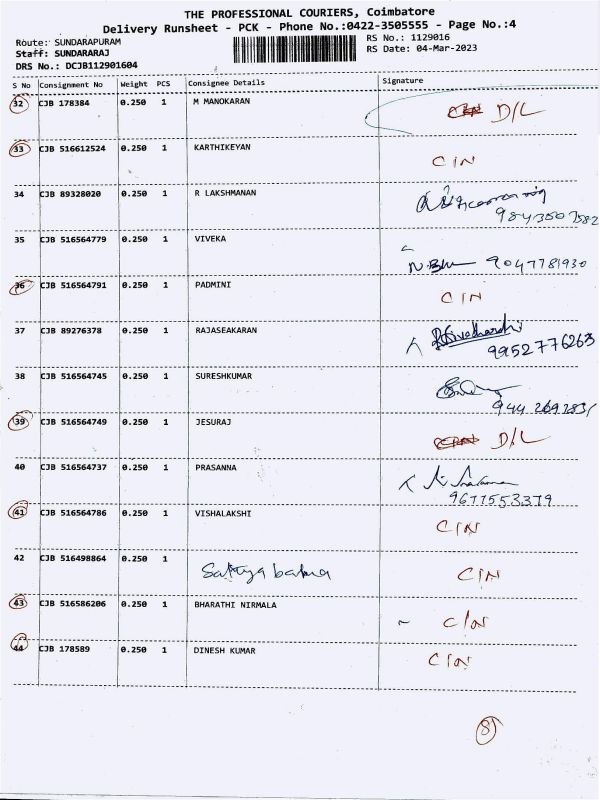 THE PROFESSIONAL COURIERS, Coimbatore
Delivery Runsheet - PCK - Phone No.:0422-3505555 - Page No.:4
Route: SUNDARAPURAM
RS No.: 1129016
Staff: SUNDARARAJ
RS Date: 04-Mar-2023
DRS No.: DCJB112901604
S No Consignment No Weight PCS Consignee Details Signature
32 CJB 178384 0.250 1 M MANOKARAN D/L
33 CJB 516612524 0.250 1 KARTHIKEYAN C/N
34 CJB 89328020 0.250 1 R LAKSHMANAN
9843507582
35 CJB 516564779 0.250 1 VIVEKA
9047781930
36 CJB 516564791 0.250 1 PADMINI C/N
37 CJB 89276378 0.250 1 RAJASEAKARAN
9952776263
38 CJB 516564745 0.250 1 SURESHKUMAR
39 CJB 516564749 0.250 1 JESURAJ D/L
40 CJB 516564737 0.250 1 PRASANNA
9677553379
41 CJB 516564786 0.250 1 VISHALAKSHI C/N
42 CJB 516498864 0.250 1 C/N
43 CJB 516586206 0.250 1 BHARATHI NIRMALA C/N
44 CJB 178589 0.250 1 DINESH KUMAR C/N
8